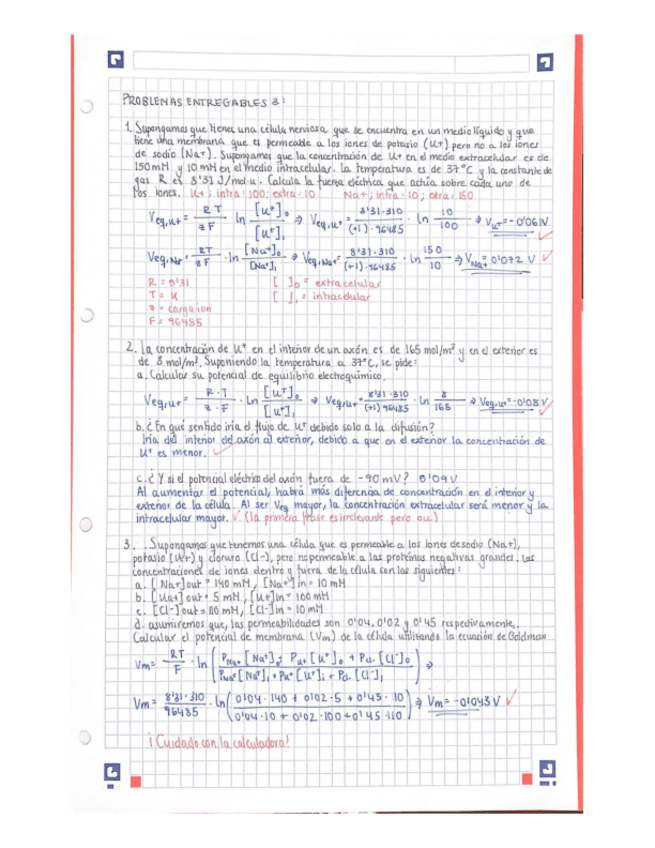 PROBLEMAS ENTREGABLES 3:
1. Supongamos que tienes una célula nerviosa que se encuentra en un medio líquido y que
tiene una membrana que es permeable a los iones de potasio (K+) pero no a los iones
de sodio (Na+). Supongamos que la concentración de K+ en el medio extracelular es de
150mM y 10mM en el medio intracelular. La temperatura es de 37°C y la constante de
gas R es 8'31 J/mol·K. Calcula la fuerza eléctrica que actúa sobre cada uno de
los iones. K+; intra=100; extra=10 Na+; intra=10; otra=150
Veq,K+ = RT/zF ln [K+]o/[K+]i ⇒ Veq,K+ = 8'31·310/(+1)·96485 · ln 10/100 ⇒ VK+ = -0'061V ✓
Veq,Na+ = RT/zF · ln [Na+]o/[Na+]i ⇒ Veq,Na+ = 8'31·310/(+1)·96485 · ln 150/10 ⇒ VNa+ = 0'072 V ✓
R = 8'31 [ ]o = extracelular
T = K [ ]i = intracelular
z = carga ion
F = 96485
2. La concentración de K+ en el interior de un axón es de 165 mol/m³ y en el exterior es
de 8 mol/m³. Suponiendo la temperatura a 37°C, se pide:
a. Calcular su potencial de equilibrio electroquímico.
Veq,K+ = R·T/z·F · ln [K+]o/[K+]i ⇒ Veq,K+ = 8'31·310/(+1)96485 · ln 8/165 ⇒ Veq,K+ = -0'08V ✓
b. ¿En qué sentido iría el flujo de K+ debido solo a la difusión?
Iría del interior del axón al exterior, debido a que en el exterior la concentración de
K+ es menor. ✓
c. ¿Y si el potencial eléctrico del axón fuera de -90 mV? 0'09V
Al aumentar el potencial, habrá más diferencia de concentración en el interior y
exterior de la célula. Al ser Veq mayor, la concentración extracelular será menor y la
intracelular mayor. ✓ (la primera frase es irrelevante pero ok)
3. Supongamos que tenemos una célula que es permeable a los iones de sodio (Na+),
potasio (K+) y cloruro (Cl-), pero no permeable a las proteínas negativas grandes. Las
concentraciones de iones dentro y fuera de la célula son las siguientes:
a. [Na+]out = 140 mM, [Na+]in = 10 mM
b. [K+]out = 5 mM, [K+]in = 100 mM
c. [Cl-]out = 110 mM, [Cl-]in = 10 mM
d. asumiremos que, las permeabilidades son 0'04, 0'02 y 0'45 respectivamente.
Calcular el potencial de membrana (Vm) de la célula utilizando la ecuación de Goldman
Vm = RT/F · ln (PNa+[Na+]o + PK+[K+]o + PCl-[Cl-]o / PNa+[Na+]i + PK+[K+]i + PCl-[Cl-]i) ⇒
Vm = 8'31·310/96485 · ln (0'04·140 + 0'02·5 + 0'45·10 / 0'04·10 + 0'02·100 + 0'45·110) ⇒ Vm = -0'043V ✓
¡Cuidado con la calculadora!